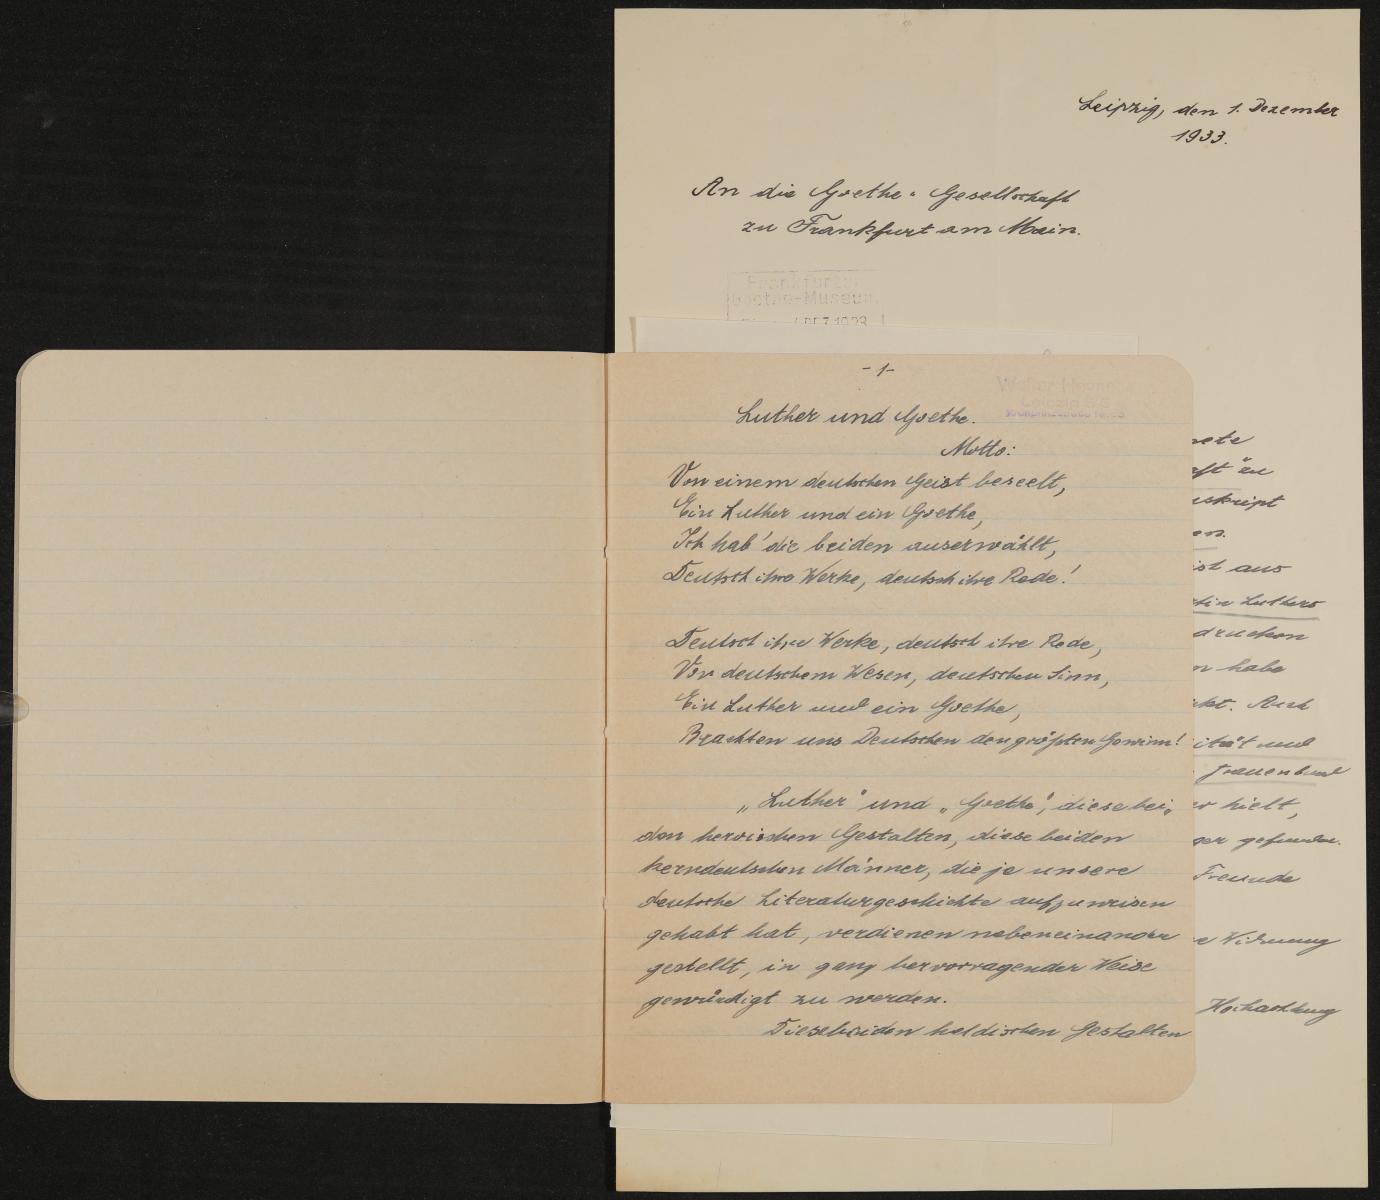 Leipzig, den 1. Dezember
1933.
An die Goethe-Gesellschaft
zu Frankfurt am Main.
Frankfurter
Goethe-Museum
DEZ. 1933
- 1 -
Leipzig
Luther und Goethe.
Motto:
Von einem deutschen Geist beseelt,
Ein Luther und ein Goethe,
Ich hab' die beiden auserwählt,
Deutsch ihre Werke, deutsch ihre Rede!
Deutsch ihre Werke, deutsch ihre Rede,
Von deutschem Wesen, deutschen Sinn,
Ein Luther und ein Goethe,
Brachten uns Deutschen den größten Gewinn!
„Luther“ und „Goethe“, diese bei-
den heroischen Gestalten, diese beiden
kerndeutschen Männer, die je unsere
deutsche Literaturgeschichte aufzuweisen
gehabt hat, verdienen nebeneinander
gestellt, in ganz hervorragender Weise
gewürdigt zu werden.
Diese beiden heldischen Gestalten
nete
aft" zu
uskript
en.
ist aus
tin Luthers
drucken
n habe
kt. Auch
ität und
Frauenbund
er hielt,
ger gefunden.
Freunde
e Widmung
Hochachtung